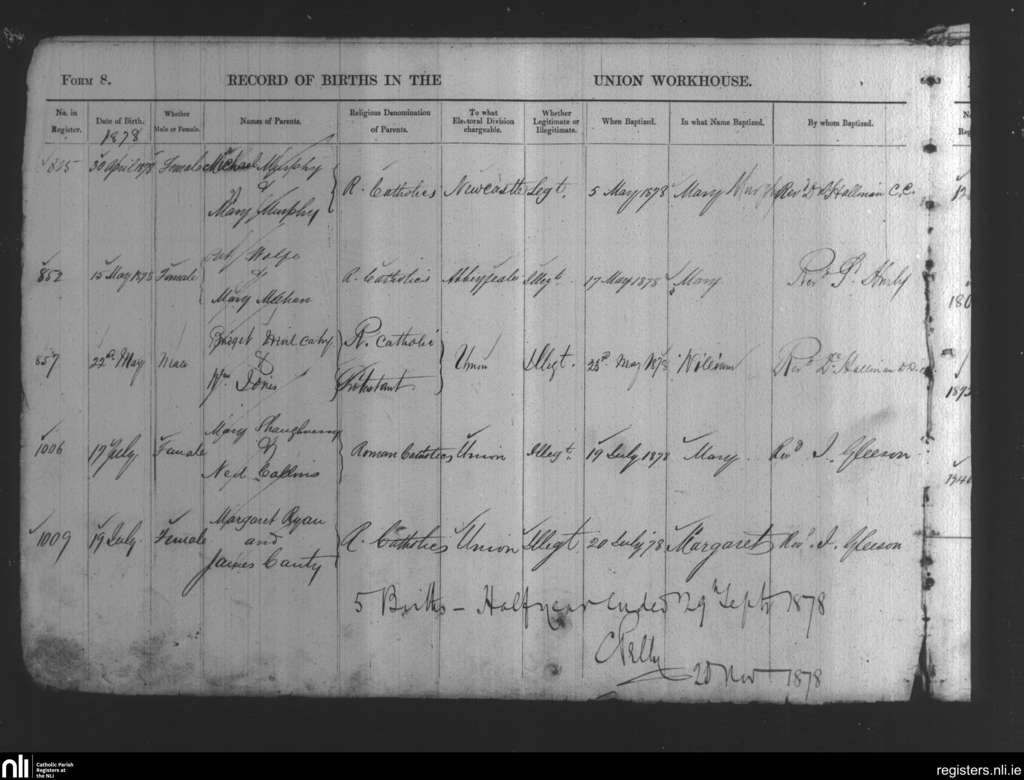 FORM 8. RECORD OF BIRTHS IN THE UNION WORKHOUSE.
No. in Register. Date of Birth. Whether Male or Female. Names of Parents. Religious Denomination of Parents. To what Electoral Division chargeable. Whether Legitimate or Illegitimate. When Baptized. In what Name Baptized. By whom Baptized.
1878
30 April 1878 Female Michael Murphy
& R. Catholics Newcastle Legt. 5 May 1878 Mary Revd Hallinan C.C.
Mary Murphy
Wolfe
852 15 May 1878 Female & R. Catholics Abbeyfeale Illegt. 17 May 1878 Mary Revd
Mary Meehan
Bridget R. Catholic
857 22nd May Male & Union Illegt. 25th May 1878 William Revd Dr Hallinan
Wm Jones Protestant
Mary Shaughnessy
1006 19 July Female & Roman Catholics Union Illegt. 19 July 1878 Mary Revd J. Gleeson
Ned Collins
Margaret Ryan
1009 19 July. Female and R. Catholics Union Illegt 20 July '78 Margaret Revd J. Gleeson
James Canty
5 Births – Half year ended 29 Septr 1878
20 Nov 1878
nli Catholic Parish Registers at the NLI registers.nli.ie